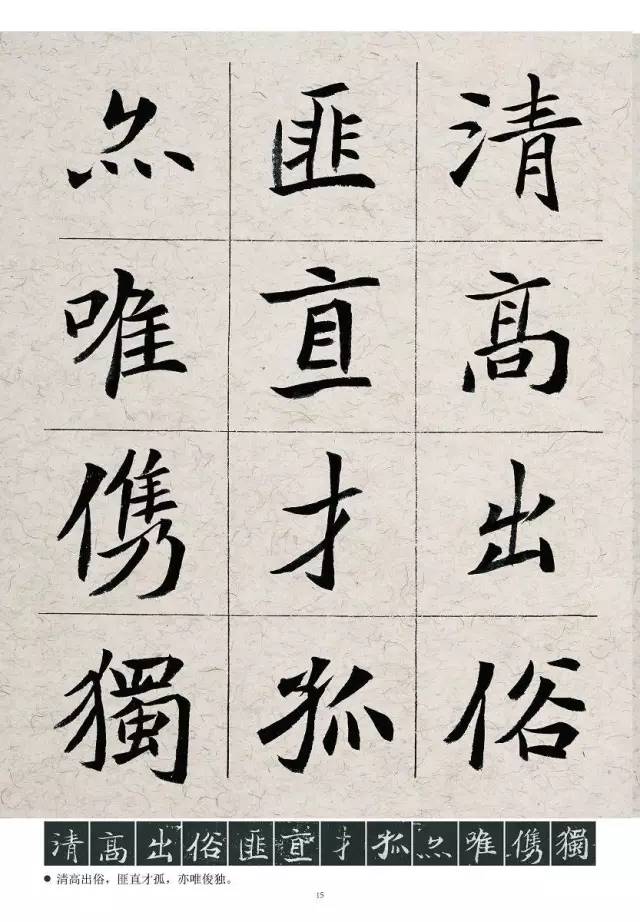 清高出俗
匪直才孤
亦唯儁獨
清高出俗匪直才孤亦唯儁獨
● 清高出俗，匪直才孤，亦唯俊独。
15